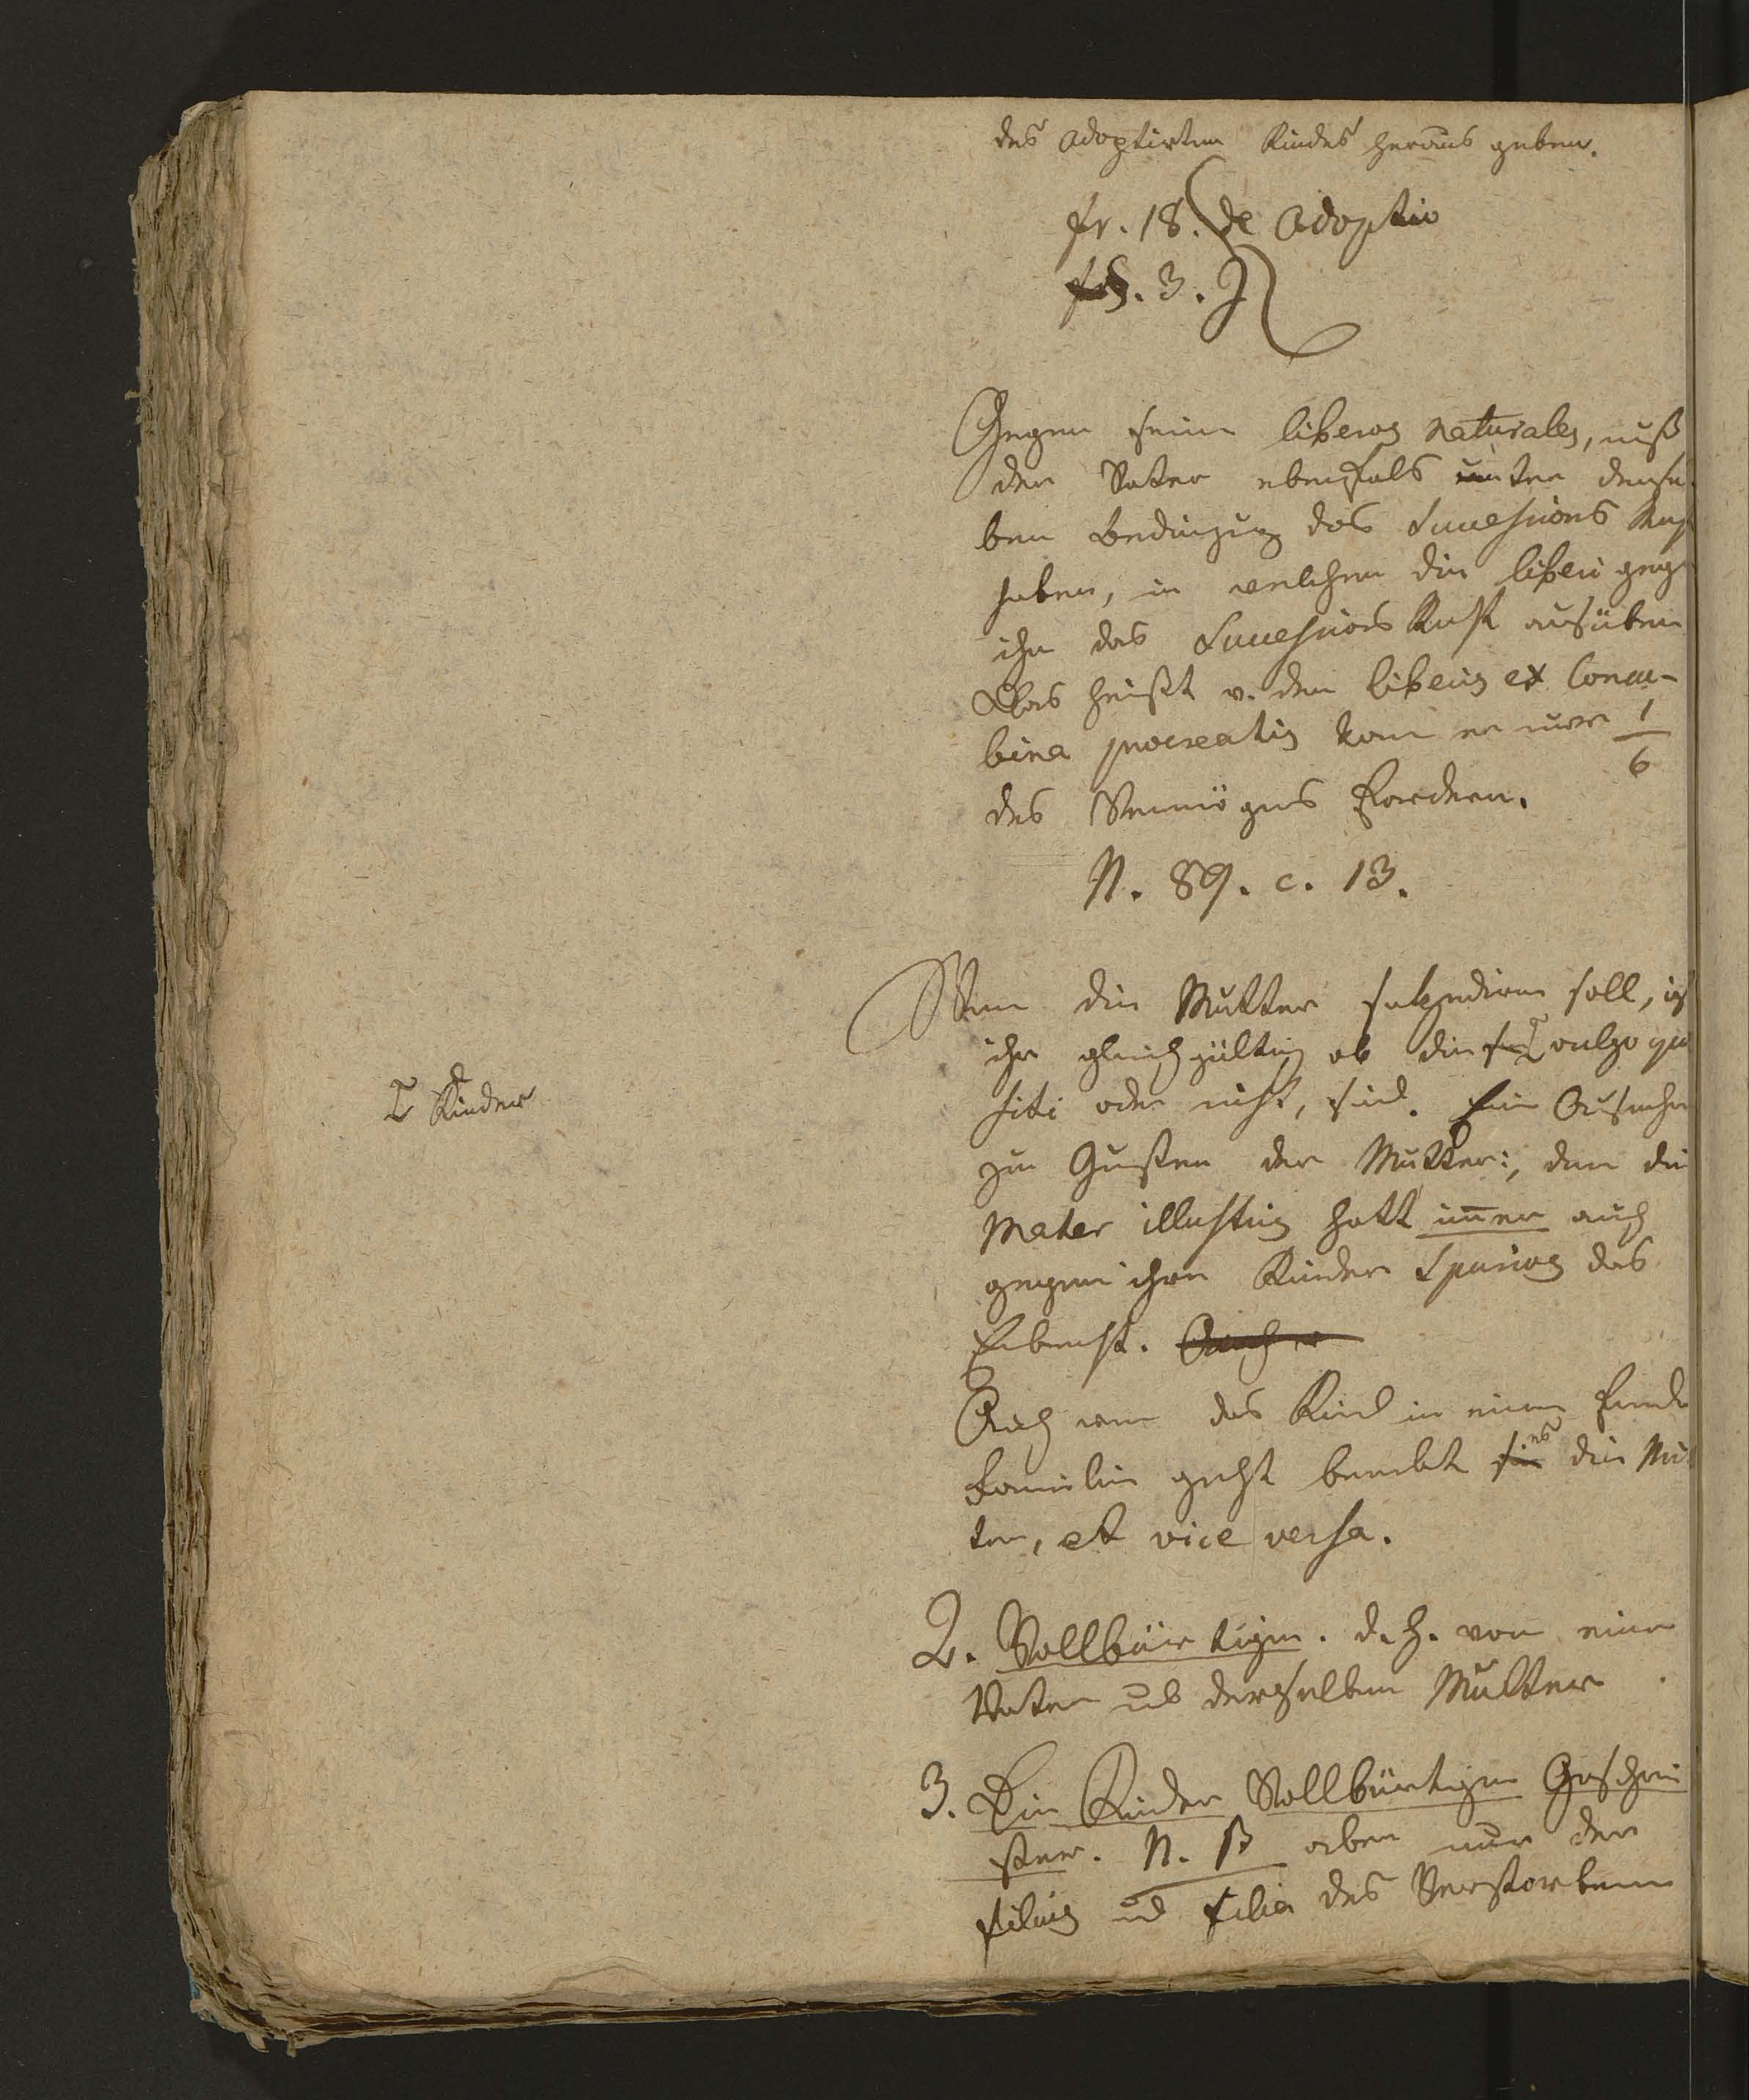 des adoptirten Kindes heraus geben.
fr. 18. de adoptio
§. 3. J
Gegen seine liberos naturales, muß
der Vater ebenfals unter densel
ben Bedingung das Successions Rech
haben, in welchen die liberi geg
ihn das Successions Recht ausüben
Das heißt v. den liberis ex Concu-
bina procreatis kan er nur 1/6
des Vermögens fordern.
N. 89. c. 13.
Wenn die Mutter succediren soll, ist
ihr gleichgültig ob die vulgo quae
siti oder nicht, sind. Eine Ausnahm
zu Gunsten der Mutter:, den die
Mater illustris hatt immer auch
gegen ihre Kinder Spurios das
Erbrecht. Auch
Auch wenn das Kind in eine fremde
Familie geht beerbt es die Mut
ter, et vice versa.
2. Vollbürtigen. d. h. von einem
Vater und derselben Mutter
3. Die Kinder Vollbürtigen Geschwi
ster. N. B aber nur der
filius und filia des Verstorbenen
Kinder